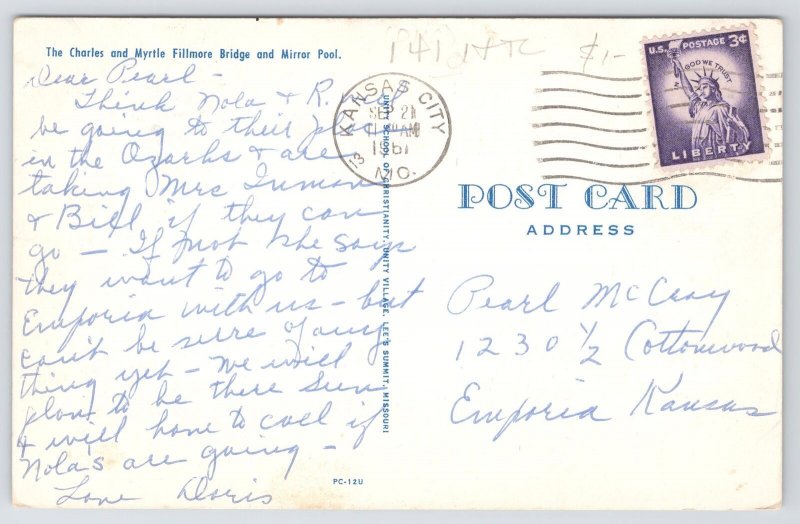 The Charles and Myrtle Fillmore Bridge and Mirror Pool.
Dear Pearl -
Think Nola & R. will
be going to their
in the Ozarks & are
taking Mrs Inman
& Bill if they can
go - If not she says
they want to go to
Emporia with us - but
can't be sure of any
thing yet - We will
plan to be there Sun
& will have to call if
Nola's are going -
Love Doris
UNITY SCHOOL OF CHRISTIANITY, UNITY VILLAGE, LEE'S SUMMIT, MISSOURI
PC-12U
KANSAS CITY
SEP 21
AM
1961
13 MO.
$1-
U.S. POSTAGE 3¢
IN GOD WE TRUST
LIBERTY
POST CARD
ADDRESS
Pearl McCray
1230 1/2 Cottonwood
Emporia Kansas